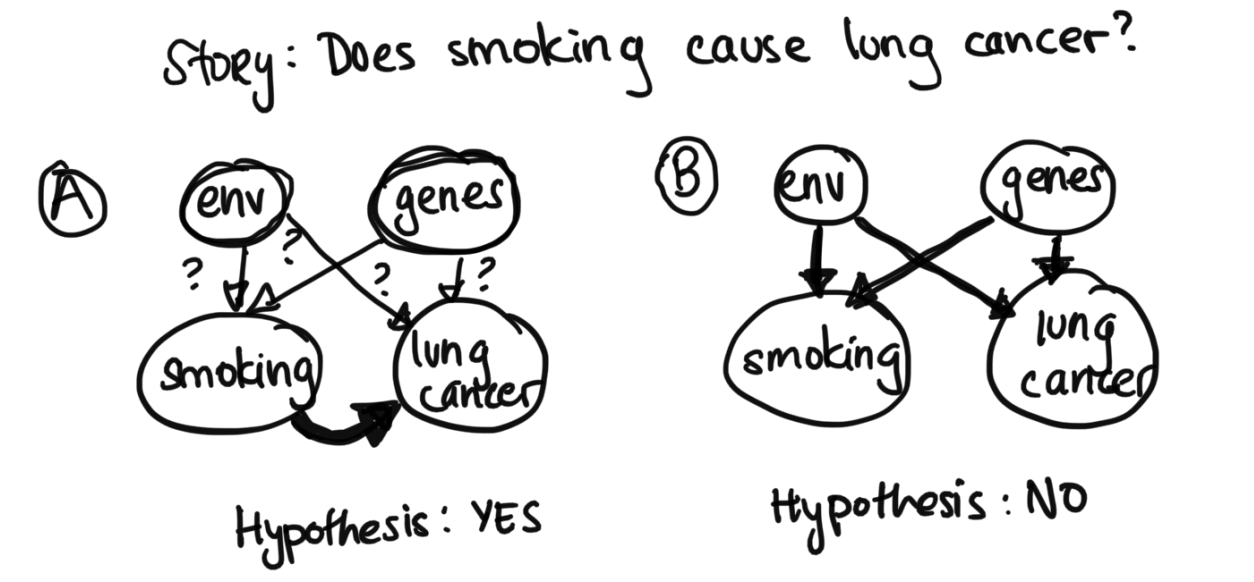 Story: Does smoking cause lung cancer?
A
env
genes
?
?
?
?
smoking
lung
cancer
Hypothesis: YES
B
env
genes
smoking
lung
cancer
Hypothesis: NO